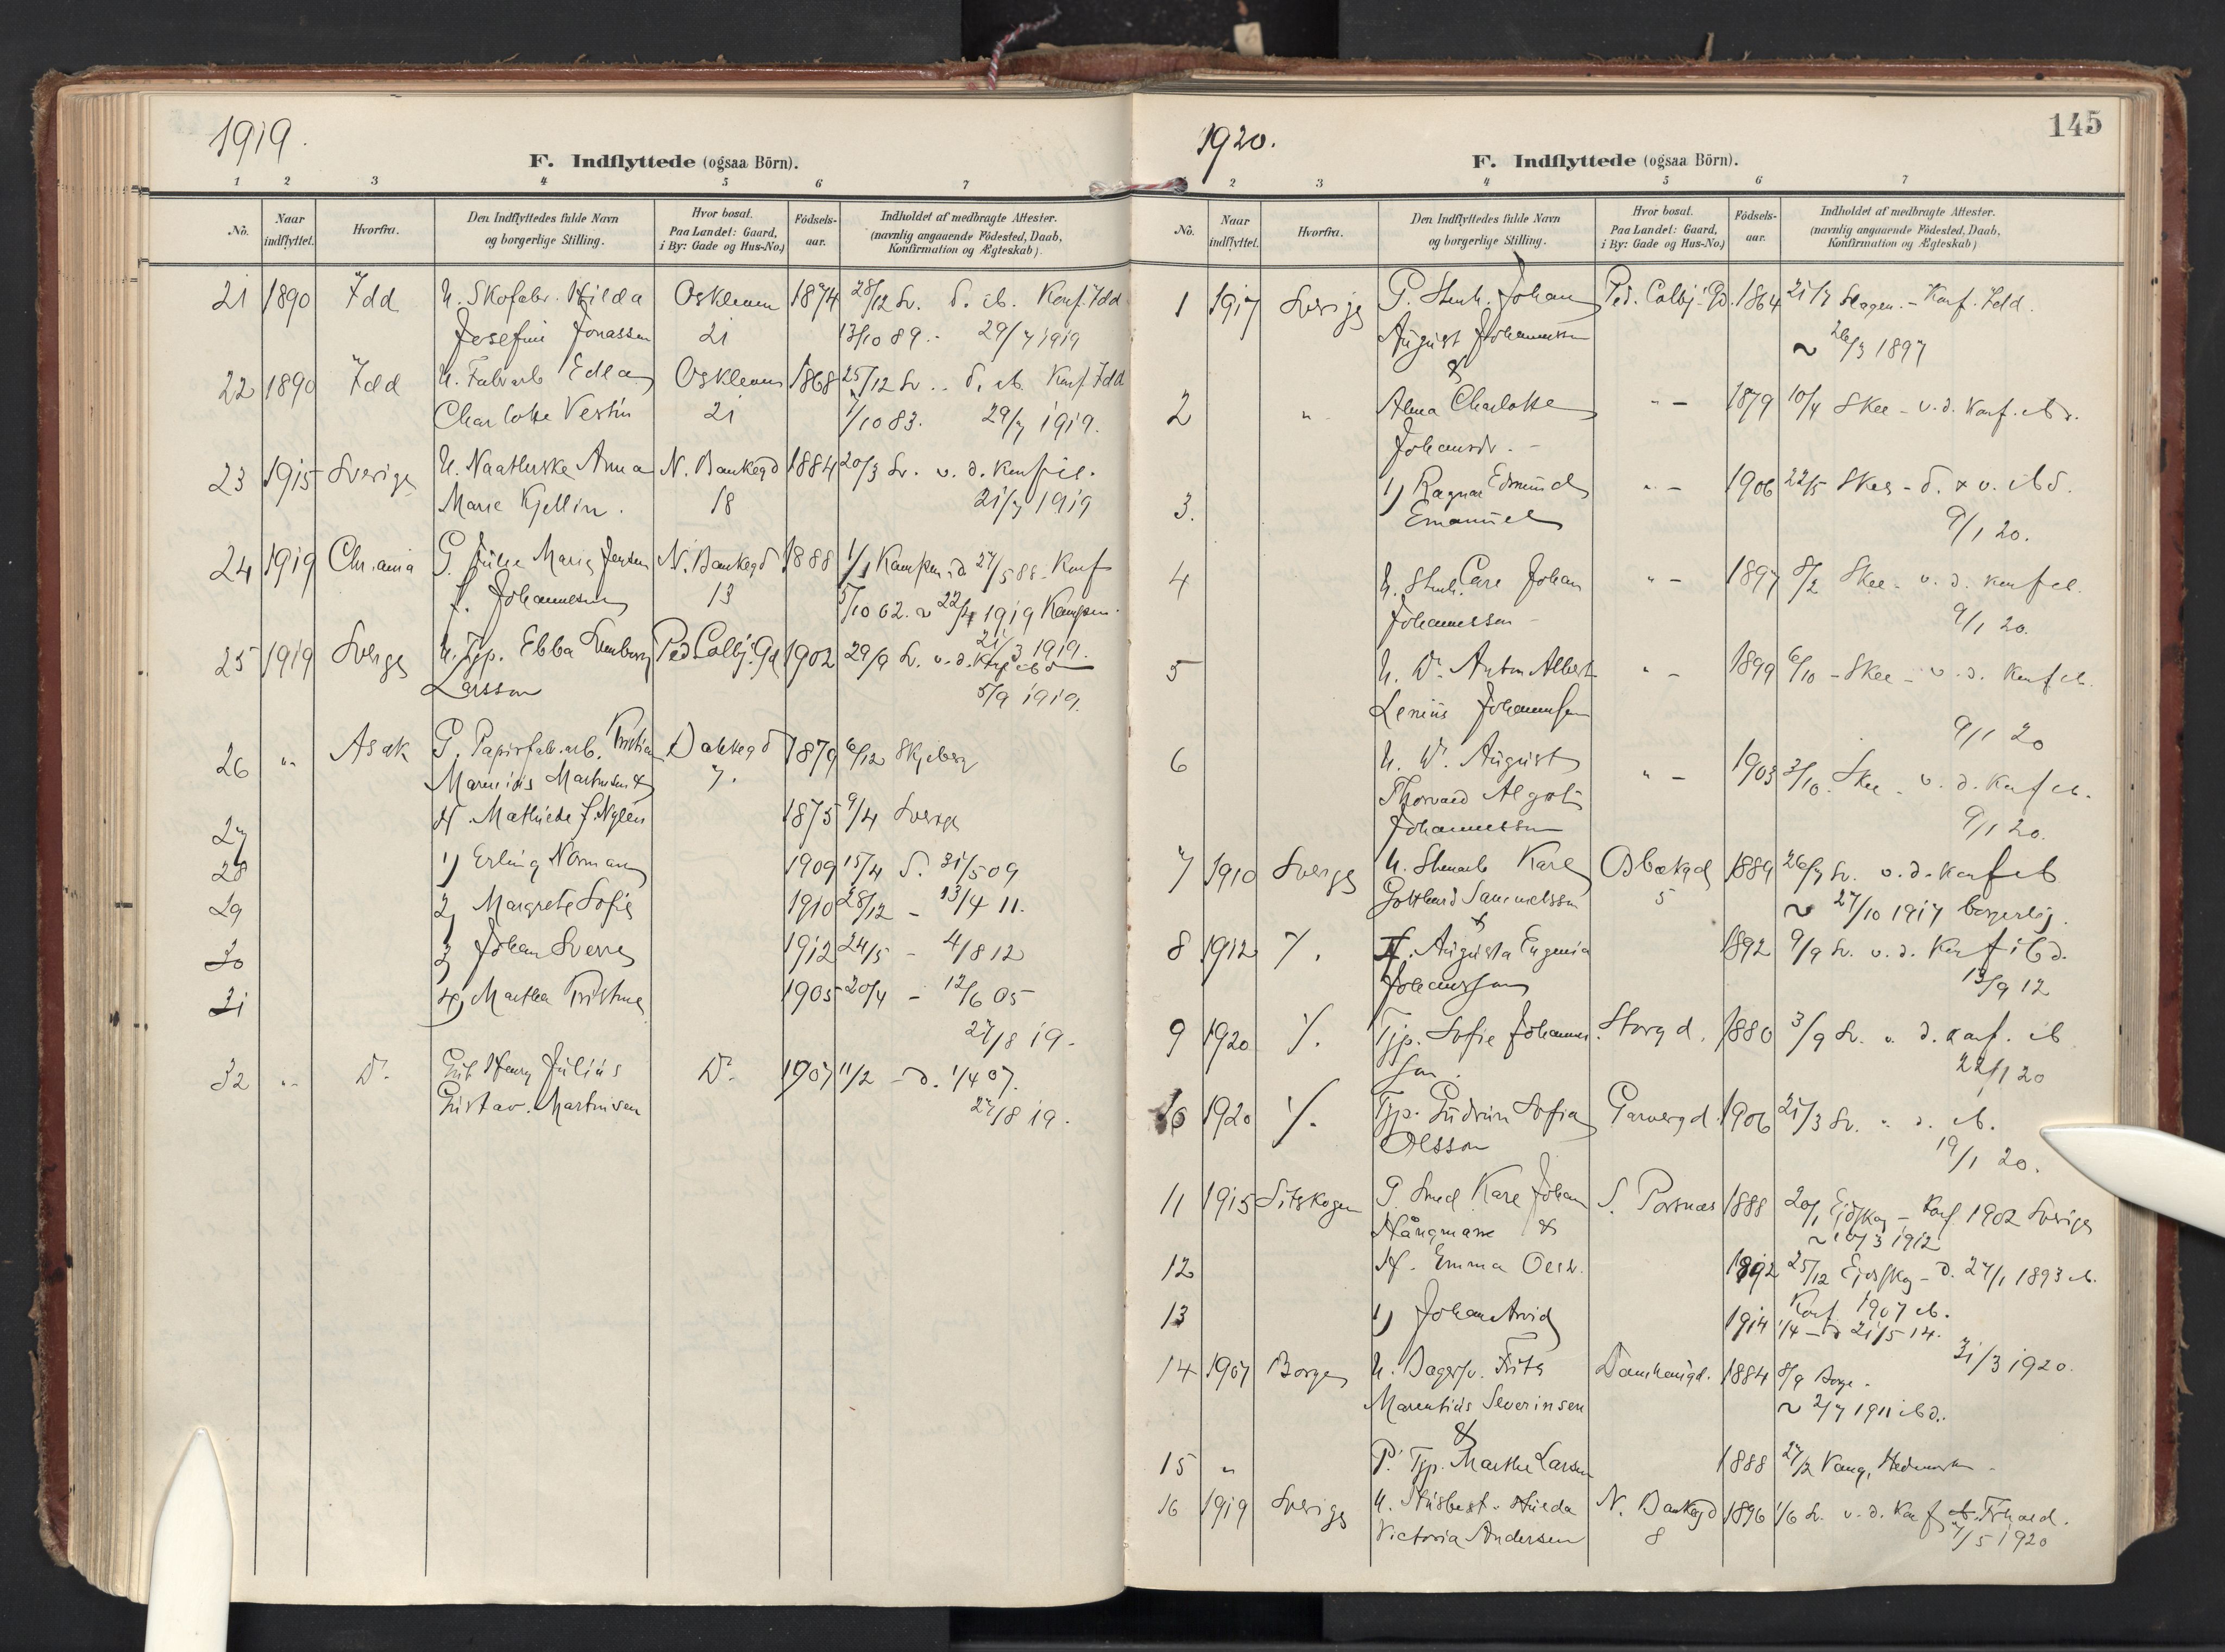 1919.
F. Indflyttede (ogsaa Börn).
1 2 3 4 5 6 7
No. Naar indflyttet. Hvorfra. Den Indflyttedes fulde Navn og borgerlige Stilling. Hvor bosat. Paa Landet: Gaard, i By: Gade og Hus-No.) Födsels-aar. Indholdet af medbragte Attester. (navnlig angaaende Födested, Daab, Konfirmation og Ægteskab).
21 1890 Idd U. Skofabr. Hilda Oskleven 1874 28/12 Sv. d. ib. Konf. Idd
Josefine Jonassen 21 13/10 89. - 29/7 1919
22 1890 Idd U. Fabrarb Edla Oskleven 1868 25/12 Sv. d. ib. Konf. Idd
Charlotte Vestin 21 7/10 83. 29/7 1919.
23 1915 Sverige U. Anna N. Bankegd 1884 20/3 Sv. v. d. Konf ib.
Marie Kjellin. 18 21/7 1919
24 1919 Chr.ania G. Julie Marie Jensen N. Bankegd 1888 1/1 Kampen. d. 27/5 88. Konf
f. Johannesen 13 5/10 02. ~ 22/2 1919 Kampen.
21/3 1919.
25 1919 Sverge U. Tjp. Ebba Ped. Colbj. Gd 1902 29/9 Sv. v. d. Konf ibd
Larsson 5/9 1919.
26 " Asak G. Papirfabr.arb. Kristian Bakkegd 1879 6/12 Skjeberg
Marinius Martinsen & 7.
27 H. Mathilde f. Nylén 1875 9/4 Sverge
28 1) Erling Norman 1909 15/4 d. 31/5 09
29 2) Margrete Sofie 1910 28/12 - 13/4 11.
30 3) Johan Sverre 1912 24/5 - 4/8 12
31 4) Martha Kristine 1905 20/4 - 12/6 05
27/8 19.
32 " Do. Henry Julius Do. 1907 11/2 - d. 1/4 07.
Gustav. Martinsen 27/8 19.
1920.
145
F. Indflyttede (ogsaa Börn).
2 3 4 5 6 7
No. Naar indflyttet. Hvorfra. Den Indflyttedes fulde Navn og borgerlige Stilling. Hvor bosat. Paa Landet: Gaard, i By: Gade og Hus-No.) Födsels-aar. Indholdet af medbragte Attester. (navnlig angaaende Födested, Daab, Konfirmation og Ægteskab)
1 1917 Sverige G. Stenh. Johan Ped. Colbj. Gd. 1864 21/7 Slagen. - Konf. Idd.
August Johannessen ~ 26/3 1897
&
2 " Alma Charlotte " - 1879 10/4 Skee - v. d. Konf. ibd.
Johansdr. -
3. 1) Ragnar Edmund " - 1906 22/5 Skee - d. & v. ibd.
Emanuel 9/1 20.
4 U. Stenh. Carl Johan " - 1897 8/2 Skee - v. d. Konf ib.
Johannessen - 9/1 20.
5 U. Do. Anton Albert " - 1899 6/10 - Skee - v. d. Konf ib.
Lenius Johannessen 9/1 20
6 U. Do. August " - 1903 3/10. Skee - v. d. Konf ib.
Thorvald Algot 9/1 20.
Johannessen
7 1910 Sverge U. Stenarb Karl Odbækgd 1889 26/7 Sv. v. d. Konf ib
Gotthard Sammelsson 5 ~ 27/10 1917 borgerlig.
&
8 1912 ./. H. Augusta Eugenia 1892 9/9 Sv. v. d. Konf ibd.
Johansson 13/9 12
9 1920 ./. Tjp. Sofie Johannes Storgd. 1880 3/9 Sv. v. d. Konf. ib
son. 22/1 20
10 1920 ./. Tjp. Gudrun Sofia Garvergd. 1906 21/3 Sv. v. d. ib.
Olsson 19/1 20.
11 1915 Sitskogen G. Smed Karl Johan S. Porsnæs 1888 20/1 Eidskog - Konf. 1902 Sverige
Hångmann & ~ 10/3 1912
12 H. Emma Olsd. 1892 25/12 Ejdskog - d. 27/1 1893 ib.
Konf. 1907 ib.
13 1) Johan Arvid 1914 1/4 - d. 21/5 14.
31/3 1920.
14 1907 Borge U. Bagersv. Frits Damhaugd. 1884 8/9 Borge -
Marentius Severinsen ~ 2/7 1911 ibd.
&
15 " P. Tjp. Marthe Larsen 1888 27/2 Vang, Hedmarken -
16 1919 Sverige U. Husbest. Hulda N. Bankegd 1896 1/6 Sv. v. d. Konf ib. Frhald.
Victoria Andersen 8 7/5 1920